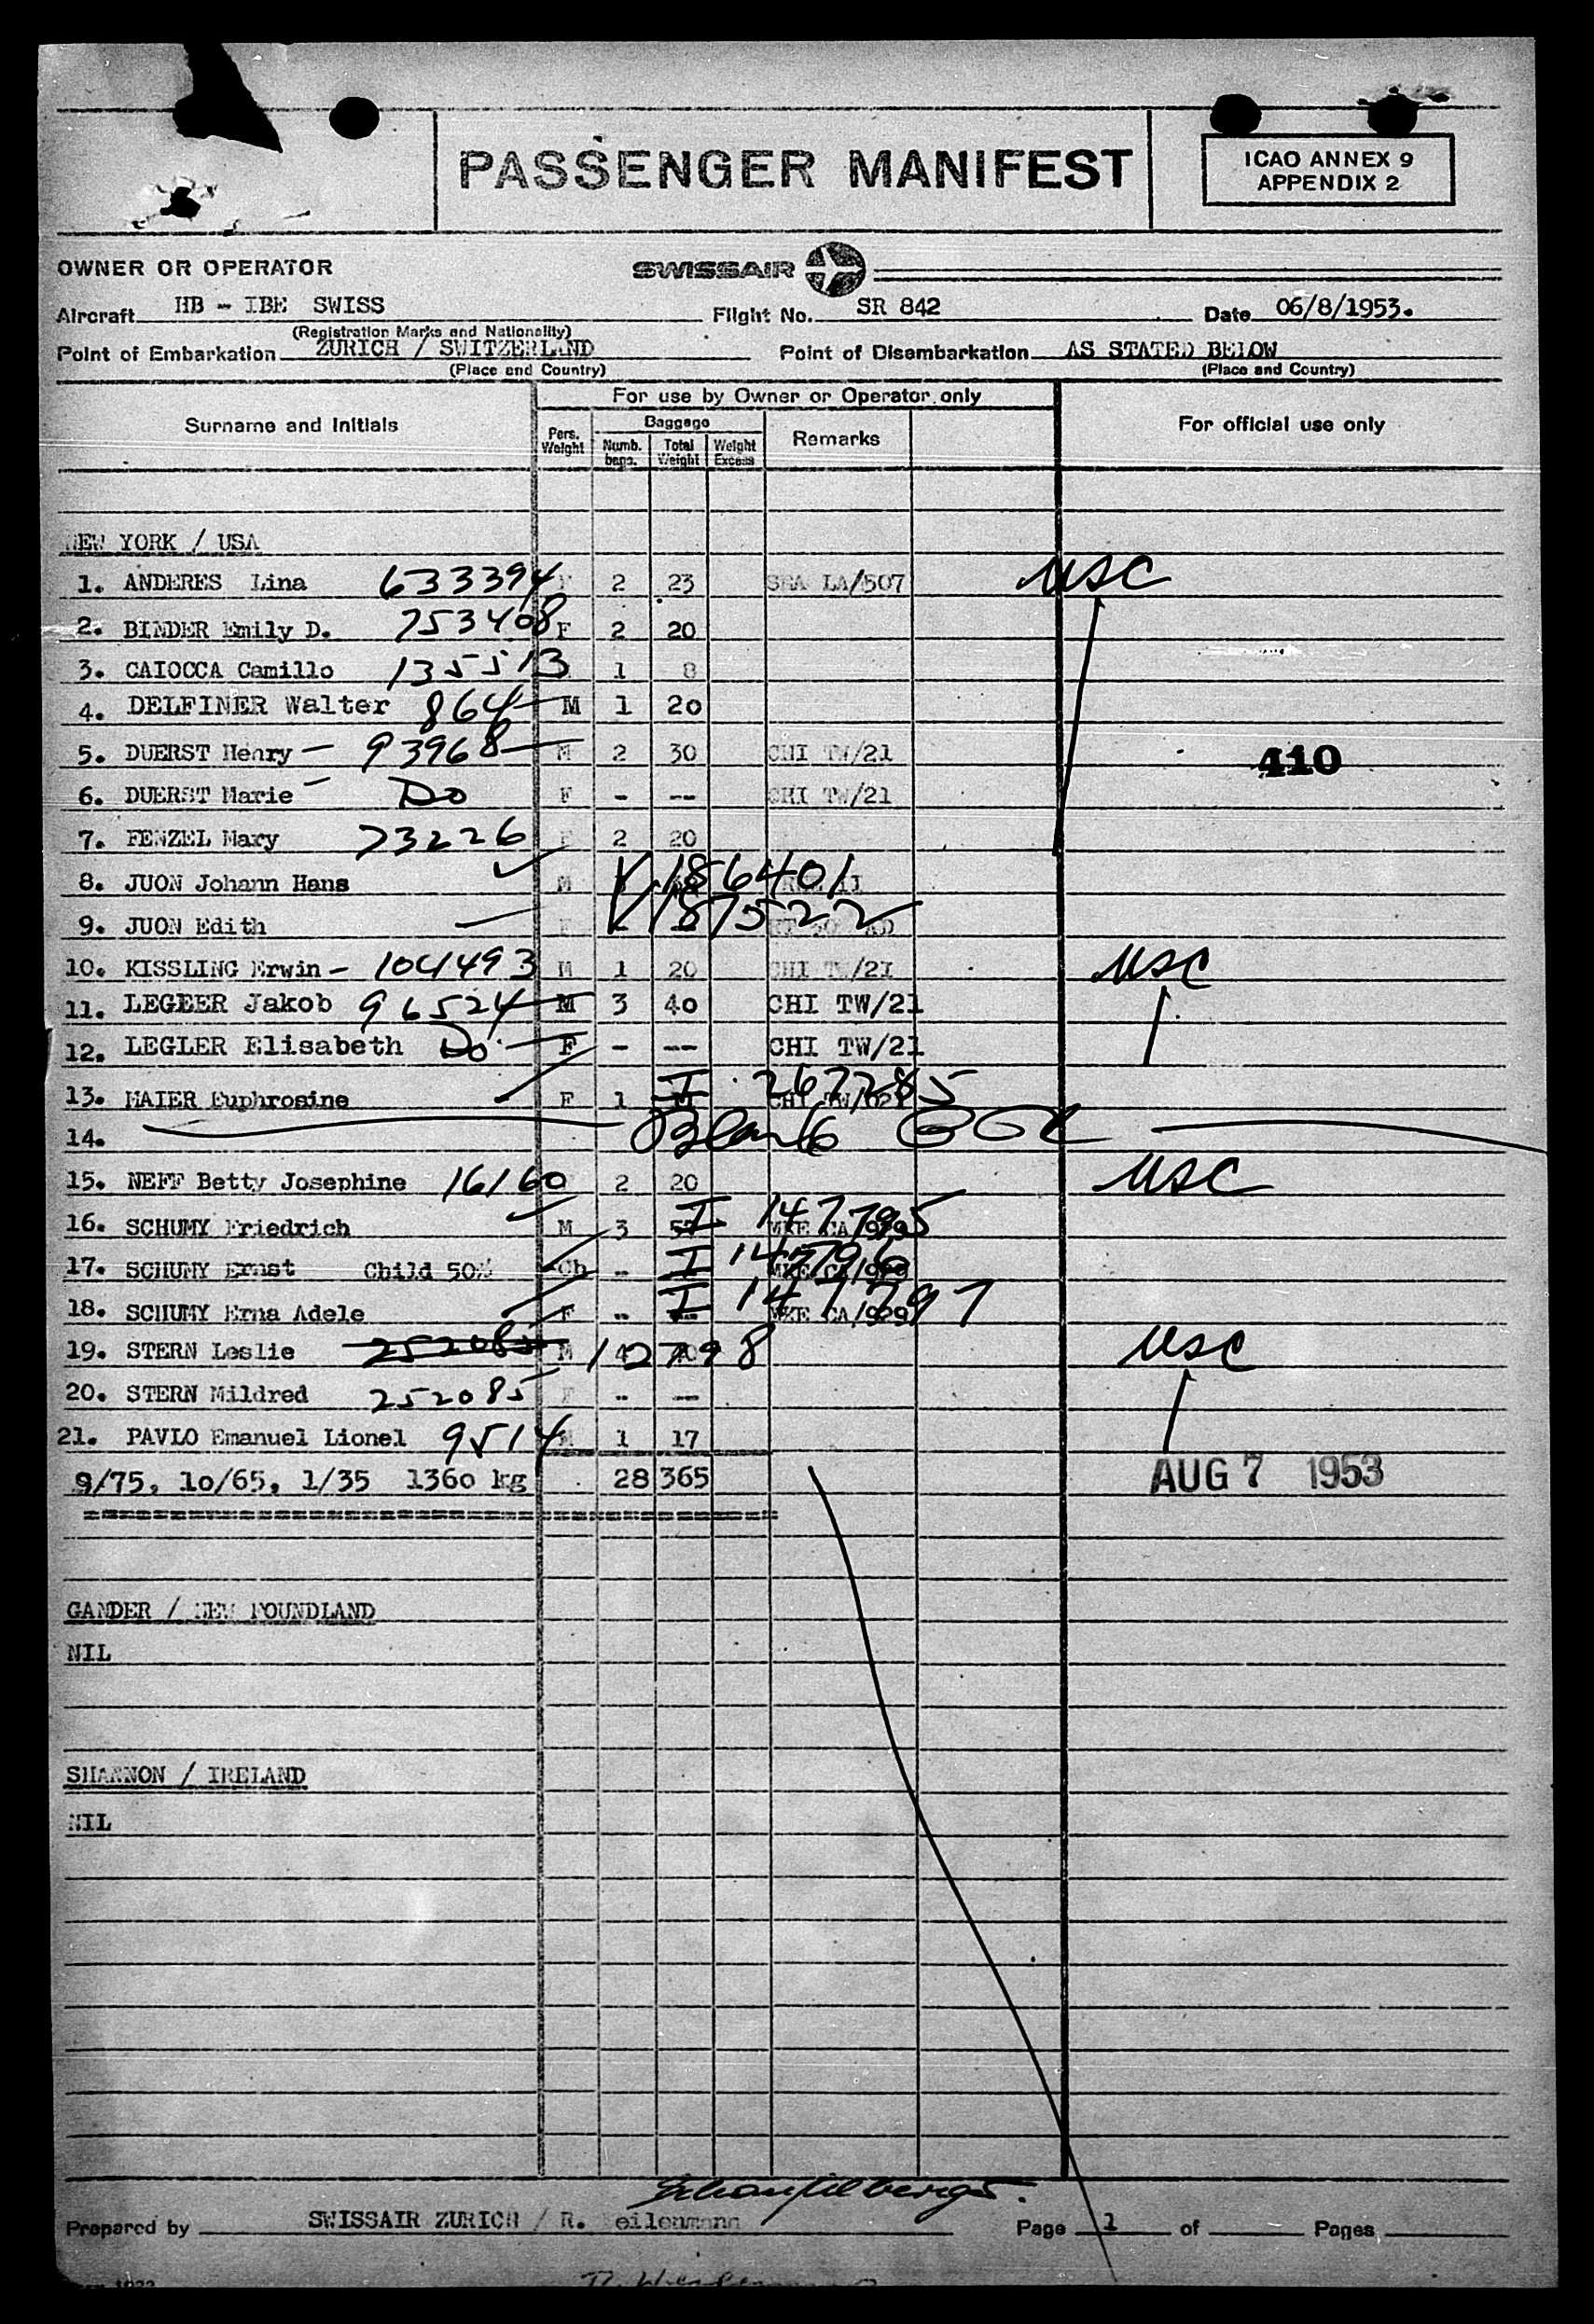 PASSENGER MANIFEST
ICAO ANNEX 9
APPENDIX 2
OWNER OR OPERATOR SWISSAIR
Aircraft HB - IBE SWISS Flight No. SR 842 Date 06/8/1953.
(Registration Marks and Nationality)
Point of Embarkation ZURICH / SWITZERLAND Point of Disembarkation AS STATED BELOW
(Place and Country) (Place and Country)
For use by Owner or Operator only
Surname and Initials Pers. Weight Baggage Remarks For official use only
Numb. bags. Total Weight Weight Excess
NEW YORK / USA
1. ANDERES Lina 633394 2 23 SEA LA/507 USC
2. BINDER Emily D. 753408 F 2 20
3. CAIOCCA Camillo 135513 1 8
4. DELFINER Walter 864 M 1 20
5. DUERST Henry - 93968 M 2 30 CHI TW/21 410
6. DUERST Marie - Do F - -- CHI TW/21
7. FENZEL Mary 73226 F 2 20
8. JUON Johann Hans M V186401
9. JUON Edith V187522
10. KISSLING Erwin - 104493 M 1 20 CHI TW/21 USC
11. LEGEER Jakob 96524 M 3 40 CHI TW/21
12. LEGLER Elisabeth Do F - -- CHI TW/21
13. MAIER Euphrosine F 1 I 267285 CHI TW/021
14. Blank
15. NEFF Betty Josephine 16160 2 20 USC
16. SCHUMY Friedrich M 3 I 147795 MKE CA/929
17. SCHUMY Ernst Child 50% Ch -- I 147796 MKE CA/929
18. SCHUMY Erna Adele F -- I 147797 MKE CA/929
19. STERN Leslie 252085 M 4 12798 USC
20. STERN Mildred 252085 F -- --
21. PAVLO Emanuel Lionel 9514 M 1 17
9/75, 10/65, 1/35 1360 kg 28 365 AUG 7 1953
GANDER / NEW FOUNDLAND
NIL
SHANNON / IRELAND
NIL
Prepared by SWISSAIR ZURICH / R. Weilenmann Page 1 of Pages